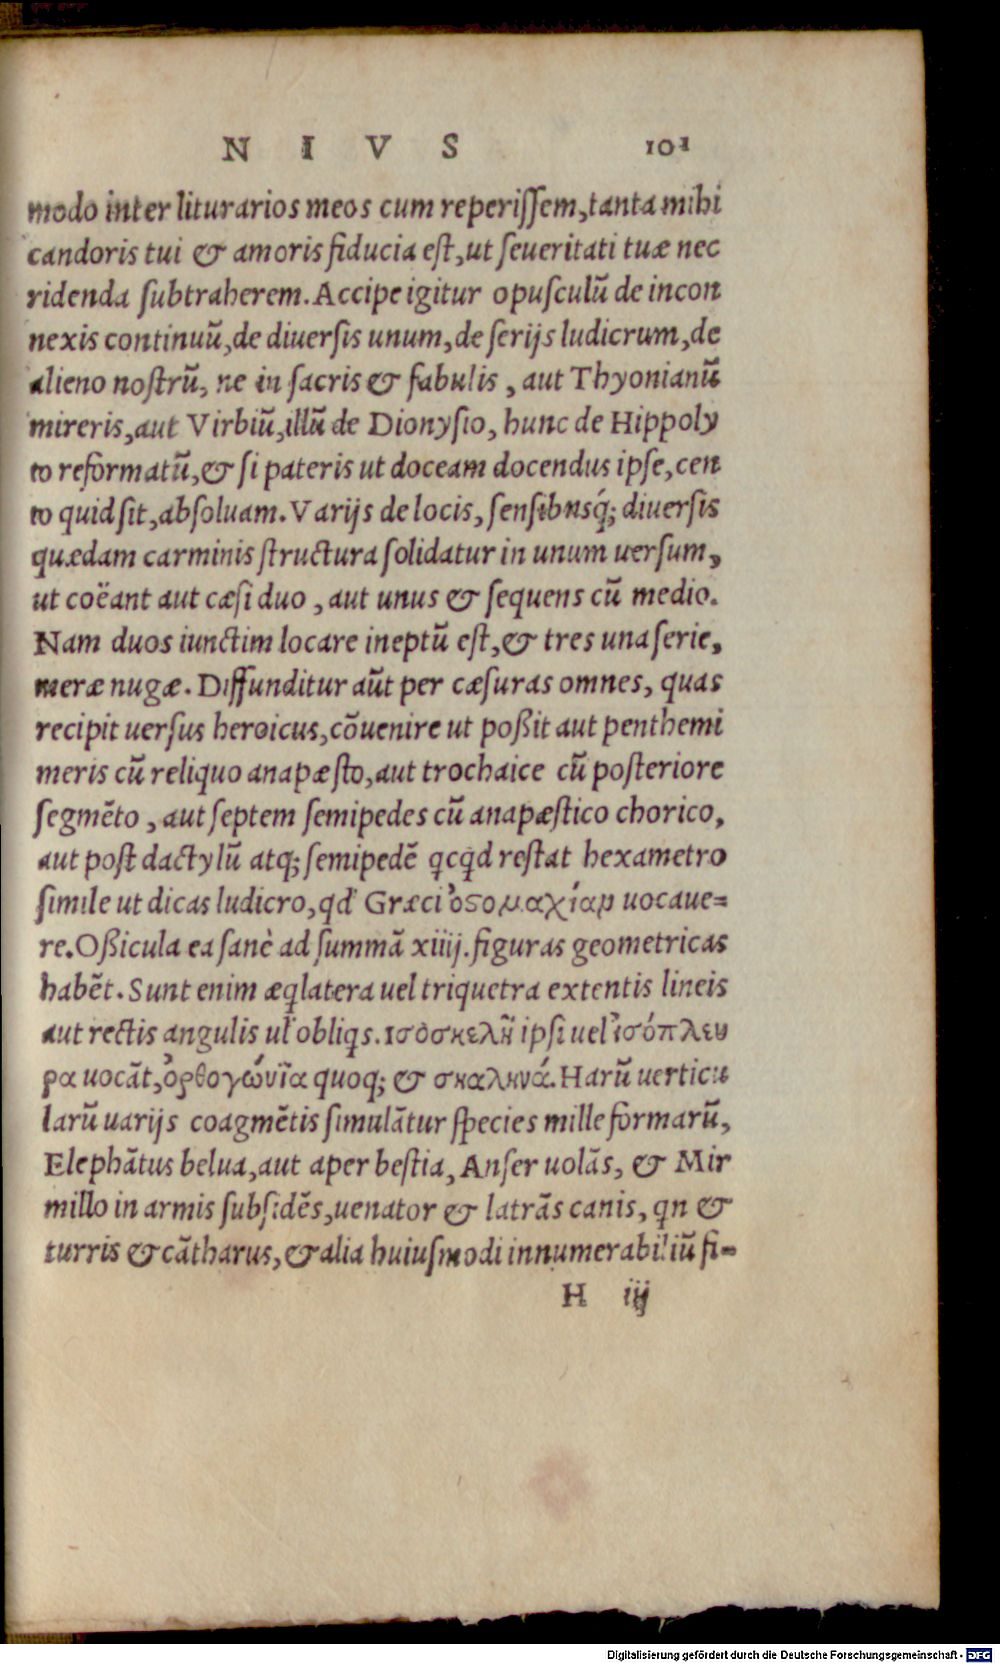 N I V S 101
modo inter liturarios meos cum reperiſſem,tanta mihi
candoris tui & amoris fiducia eſt,ut ſeueritati tuæ nec
ridenda ſubtraherem.Accipe igitur opuſculũ de incon
nexis continuũ,de diuerſis unum,de ſerijs ludicrum,de
alieno noſtrũ, ne in ſacris & fabulis , aut Thyonianũ
mireris,aut Virbiũ,illũ de Dionyſio, hunc de Hippoly
to reformatũ,& ſi pateris ut doceam docendus ipſe,cen
to quid ſit,abſoluam.Varijs de locis, ſenſibusq́; diuerſis
quædam carminis ſtructura ſolidatur in unum uerſum,
ut coëant aut cæſi duo , aut unus & ſequens cũ medio.
Nam duos iunctim locare ineptũ eſt,& tres una ſerie,
meræ nugæ. Diffunditur aũt per cæſuras omnes, quas
recipit uerſus heroicus,cõuenire ut poßit aut penthemi
meris cũ reliquo anapæſto,aut trochaice cũ poſteriore
ſegmẽto , aut ſeptem ſemipedes cũ anapæſtico chorico,
aut poſt dactylũ atq; ſemipedẽ qcqd reſtat hexametro
ſimile ut dicas ludicro,qd' Græci ὀϛομαχίαμ uocaue=
re.Oßicula ea ſanè ad ſummã xiiij.figuras geometricas
habẽt.Sunt enim æqlatera uel triquetra extentis lineis
aut rectis angulis ul' obliqs.ισὸσκελῆ ipſi uel ἰσόπλευ
ρα uocãt,ὀρθογώνῖα quoq; & σκαληνά.Harũ verticu
larũ uarijs coagmẽtis ſimulãtur ſpecies mille formarũ,
Elephãtus belua,aut aper beſtia, Anſer uolãs, & Mir
millo in armis ſubſidẽs,uenator & latrãs canis, qn &
turris & cãtharus,& alia huiuſmodi innumerabiliũ fi=
H iij
Digitalisierung gefördert durch die Deutsche Forschungsgemeinschaft - DFG